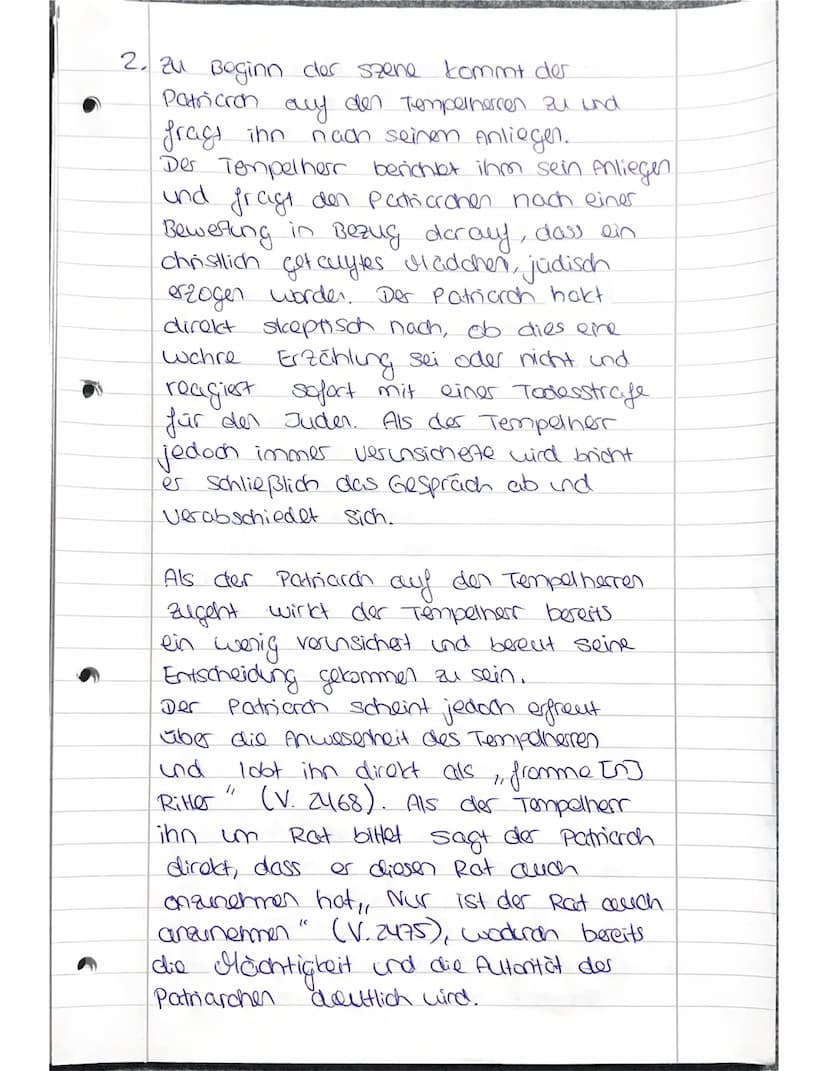 2. Zu Beginn der Szene kommt der
Patriarch auf den Tempelherren zu und
fragt ihn nach seinen Anliegen.
Der Tempelherr berichtet ihm sein Anliegen
und fragt den Patriarchen nach einer
Bewertung in Bezug darauf, dass ein
christlich getauftes Mädchen, jüdisch
erzogen worden. Der Patriarch hakt
direkt skeptisch nach, ob dies eine
wahre Erzählung sei oder nicht und
reagiert sofort mit einer Todesstrafe
für den Juden. Als der Tempelherr
jedoch immer verunsicherte wird bricht
er schließlich das Gespräch ab und
verabschiedet sich.
Als der Patriarch auf den Tempelherren
zugeht wirkt der Tempelherr bereits
ein wenig verunsichert und bereut seine
Entscheidung gekommen zu sein.
Der Patriarch scheint jedoch erfreut
über die Anwesenheit des Tempelherren
und lobt ihn direkt als „fromme[n]
Ritter" (V. 2468). Als der Tempelherr
ihn um Rat bittet sagt der Patriarch
direkt, dass er diesen Rat auch
anzunehmen hat„ Nur ist der Rat auch
anzunehmen" (V. 2475), wodurch bereits
die Mächtigkeit und die Autorität des
Patriarchen deutlich wird.